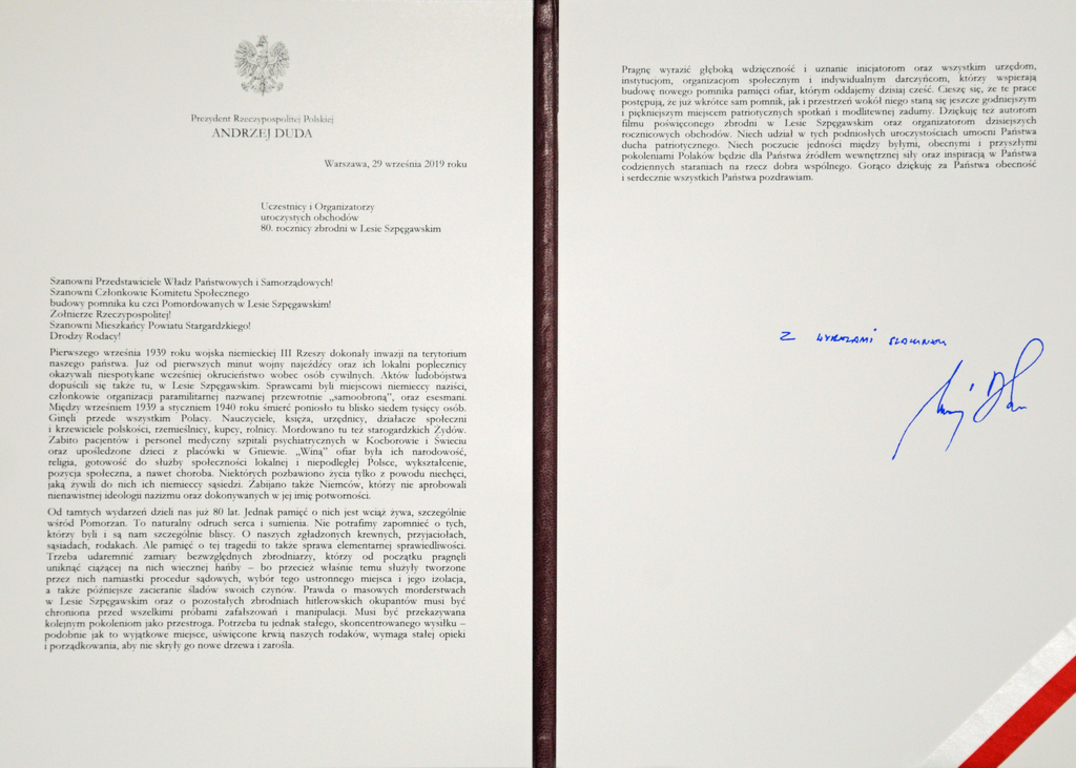 Prezydent Rzeczypospolitej Polskiej
ANDRZEJ DUDA
Warszawa, 29 września 2019 roku
Uczestnicy i Organizatorzy
uroczystych obchodów
80. rocznicy zbrodni w Lesie Szpęgawskim
Szanowni Przedstawiciele Władz Państwowych i Samorządowych!
Szanowni Członkowie Komitetu Społecznego
budowy pomnika ku czci Pomordowanych w Lesie Szpęgawskim!
Żołnierze Rzeczypospolitej!
Szanowni Mieszkańcy Powiatu Stargardzkiego!
Drodzy Rodacy!
Pierwszego września 1939 roku wojska niemieckiej III Rzeszy dokonały inwazji na terytorium
naszego państwa. Już od pierwszych minut wojny najeźdźcy oraz ich lokalni poplecznicy
okazywali niespotykane wcześniej okrucieństwo wobec osób cywilnych. Aktów ludobójstwa
dopuścili się także tu, w Lesie Szpęgawskim. Sprawcami byli miejscowi niemieccy naziści,
członkowie organizacji paramilitarnej nazwanej przewrotnie „samoobroną”, oraz esesmani.
Między wrześniem 1939 a styczniem 1940 roku śmierć poniosło tu blisko siedem tysięcy osób.
Ginęli przede wszystkim Polacy. Nauczyciele, księża, urzędnicy, działacze społeczni
i krzewiciele polskości, rzemieślnicy, kupcy, rolnicy. Mordowano tu też starogardzkich Żydów.
Zabito pacjentów i personel medyczny szpitali psychiatrycznych w Kocborowie i Świeciu
oraz upośledzone dzieci z placówki w Gniewie. „Winą” ofiar była ich narodowość,
religia, gotowość do służby społeczności lokalnej i niepodległej Polsce, wykształcenie,
pozycja społeczna, a nawet choroba. Niektórych pozbawiono życia tylko z powodu niechęci,
jaką żywili do nich ich niemieccy sąsiedzi. Zabijano także Niemców, którzy nie aprobowali
nienawistnej ideologii nazizmu oraz dokonywanych w jej imię potworności.
Od tamtych wydarzeń dzieli nas już 80 lat. Jednak pamięć o nich jest wciąż żywa, szczególnie
wśród Pomorzan. To naturalny odruch serca i sumienia. Nie potrafimy zapomnieć o tych,
którzy byli i są nam szczególnie bliscy. O naszych zgładzonych krewnych, przyjaciołach,
sąsiadach, rodakach. Ale pamięć o tej tragedii to także sprawa elementarnej sprawiedliwości.
Trzeba udaremnić zamiary bezwzględnych zbrodniarzy, którzy od początku pragnęli
uniknąć ciążącej na nich wiecznej hańby – bo przecież właśnie temu służyły tworzone
przez nich namiastki procedur sądowych, wybór tego ustronnego miejsca i jego izolacja,
a także późniejsze zacieranie śladów swoich czynów. Prawda o masowych morderstwach
w Lesie Szpęgawskim oraz o pozostałych zbrodniach hitlerowskich okupantów musi być
chroniona przed wszelkimi próbami zafałszowań i manipulacji. Musi być przekazywana
kolejnym pokoleniom jako przestroga. Potrzeba tu jednak stałego, skoncentrowanego wysiłku –
podobnie jak to wyjątkowe miejsce, uświęcone krwią naszych rodaków, wymaga stałej opieki
i porządkowania, aby nie skryły go nowe drzewa i zarośla.
Pragnę wyrazić głęboką wdzięczność i uznanie inicjatorom oraz wszystkim urzędom,
instytucjom, organizacjom społecznym i indywidualnym darczyńcom, którzy wspierają
budowę nowego pomnika pamięci ofiar, którym oddajemy dzisiaj cześć. Cieszę się, że te prace
postępują, że już wkrótce sam pomnik, jak i przestrzeń wokół niego staną się jeszcze godniejszym
i piękniejszym miejscem patriotycznych spotkań i modlitewnej zadumy. Dziękuję też autorom
filmu poświęconego zbrodni w Lesie Szpęgawskim oraz organizatorom dzisiejszych
rocznicowych obchodów. Niech udział w tych podniosłych uroczystościach umocni Państwa
ducha patriotycznego. Niech poczucie jedności między byłymi, obecnymi i przyszłymi
pokoleniami Polaków będzie dla Państwa źródłem wewnętrznej siły oraz inspiracją w Państwa
codziennych staraniach na rzecz dobra wspólnego. Gorąco dziękuję za Państwa obecność
i serdecznie wszystkich Państwa pozdrawiam.
Z WYRAZAMI SZACUNKU